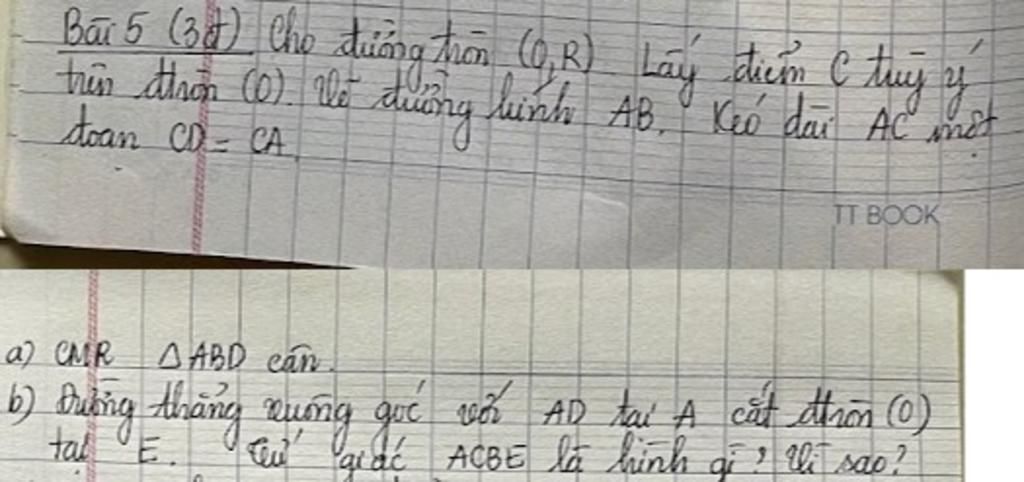 Bài 5 (3đ) Cho đường tròn (O,R) Lấy điểm C tuỳ ý
trên đtròn (O). Vẽ đường kính AB. Kéo dài AC một
đoạn CD = CA
TT BOOK
a) CMR △ABD cân.
b) Đường thẳng vuông góc với AD tại A cắt đtròn (O)
tại E. Tứ giác ACBE là hình gì? Vì sao?